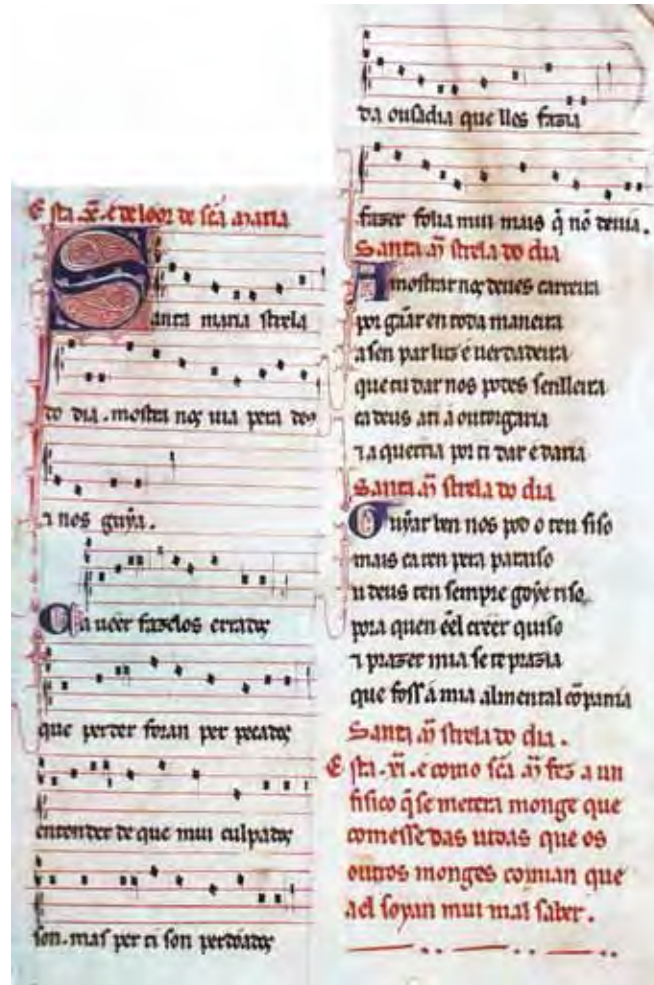 Esta .xc. é de loor de scã maria
Santa maria strela
do dia. mostra nos uia pera deꝯ
⁊ nos guÿa.
Ca ueer fazelos erradoꝯ
que perder foran per pecadoꝯ
entender de que mui culpadoꝯ
son. mas per ti son perdõadoꝯ
da ousadia que lles fazia
fazer folia mui mais q̃ nõ deuia.
Santa m̃ strela do dia
Amostrar noꝯ deues carreira
por gãar en toda maneira
a sen par luz e uerdadeira
que tu dar nos podes senlleira
ca deus a ti á outorgaria
⁊ a querria por ti dar e daria
Santa m̃ strela do dia
Guÿar ben nos pod o teu siso
mais ca ren pera paraiso
u deus ten sempre goy e riso
pora quen eel creer quiso
⁊ prazer mia se te prazia
que foss á mia alm en tal cõpania
Santa m̃ strela do dia.
Esta .xi. é como scã m̃ fez a un
fisico q̃ se metera monge que
comesse das uidas que os
outros monges comian que
a el soyan mui mal saber.